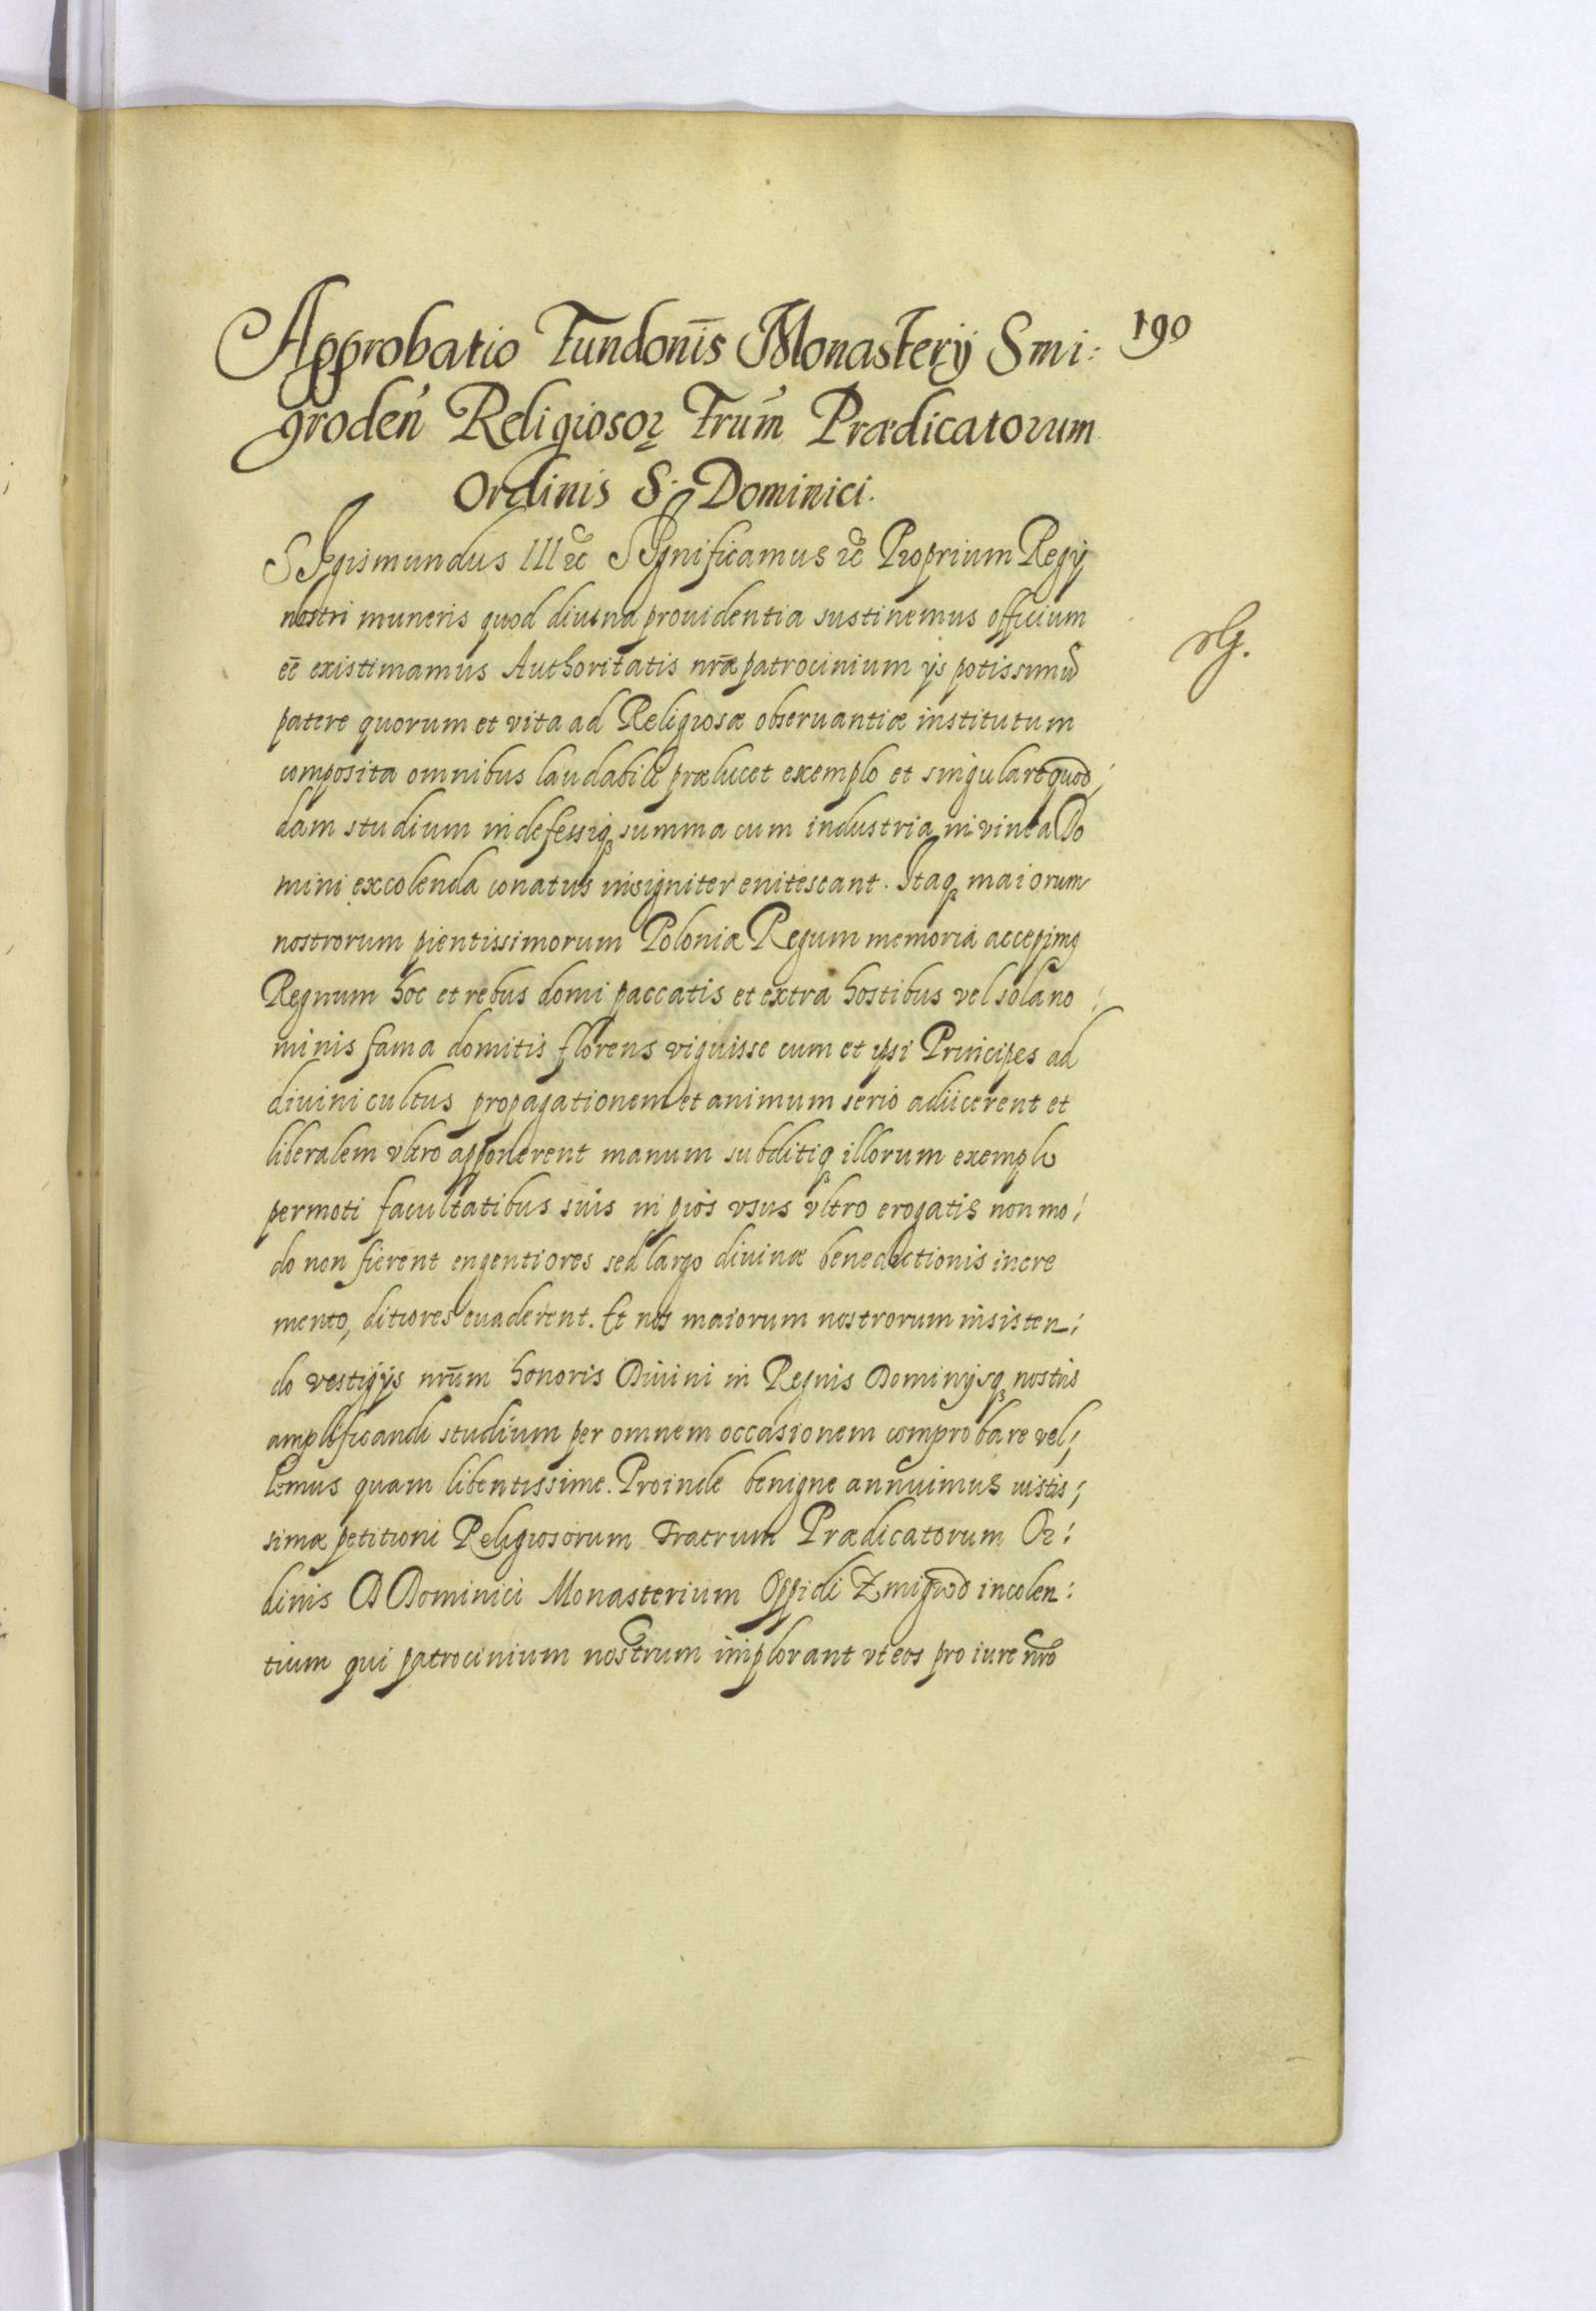 Approbatio Fundonĩs Monasterÿ Smi:
190
groden̄ Religiosoꝝ Frūm Prædicatorum
Ordinis S. Dominici.
SIgismundus III ꝛc̃ SIgnificamus ꝛc̃ Proprium Regÿ
nostri muneris quod diuina prouidentia sustinemus officium
eē existimamus Authoritatis nr̄æ patrocinium ÿs potissimū
patere quorum et vita ad Religiosæ obseruantiæ institutum
composita omnibus laudabili prælucet exemplo et singulare quod;
dam studium indefessiqꝫ summa cum industria in vinea Do
mini excolenda conatus insigniter enitescant. Itaqꝫ maiorum
nostrorum pientissimorum Poloniæ Regum memoria accepimꝰ
Regnum hoc et rebus domi paccatis et extra hostibus vel sola no:
minis fama domitis florens viguisse cum et ipsi Principes ad
diuini cultus propagationem et animum serio adiicerent et
liberalem vltro apponerent manum subditiqꝫ illorum exemplo
permoti facultatibus suis in pios vsus vltro erogatis non mo:
do non fierent engentiores sed largo diuinæ benedictionis incre
mento, ditiores euaderent. Et nos maiorum nostrorum insisten:
do vestigÿs nr̄um honoris Diuini in Regnis Dominÿsqꝫ nostris
amplificandi studium per omnem occasionem comprobare vel;
lemus quam libentissime. Proinde benigne annuimus iustis;
simæ petitioni Religiosorum Fratrum Prædicatorum Or:
dinis D Dominici Monasterium Oppidi Zmigrod incolen:
tium qui patrocinium nostrum implorant vt eos pro iure nr̄o